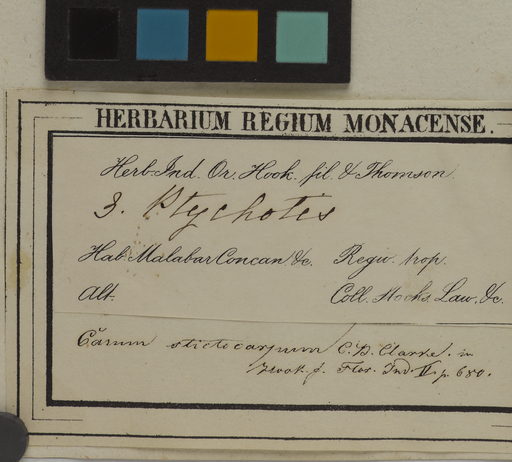 HERBARIUM REGIUM MONACENSE.
Herb. Ind. Or. Hook. fil. & Thomson.
3. Ptychotis
Hab. Malabar Concan &c. Regio trop.
Alt. Coll. Stocks, Law, &c.
Carum stictocarpum C. B. Clarke. in
Hook f. Flor. Ind. II p. 680.